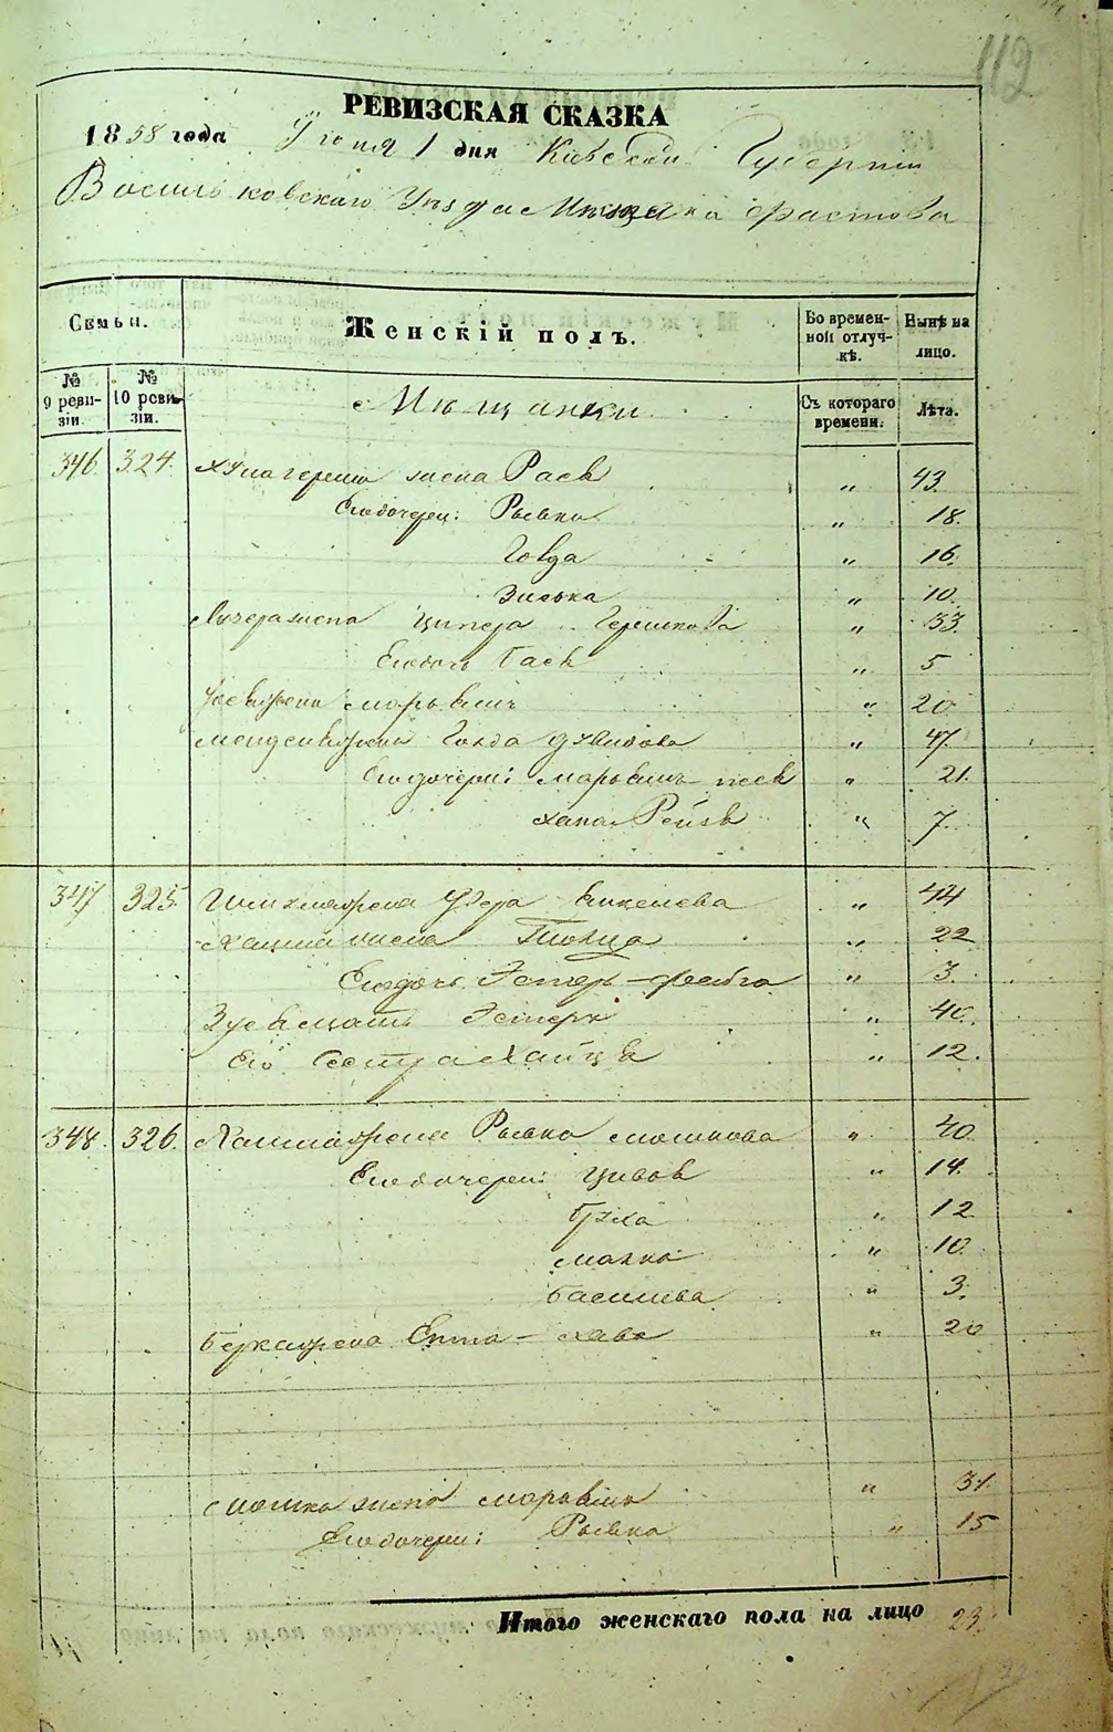 112
РЕВИЗСКАЯ СКАЗКА
1858 года Июня 1 дня Киевской Губернии
Васильковскаго Уезда Местечка Фастова
Семьи.
Женскій полъ.
Во времен-
ной отлуч-
кѣ.
Нынѣ на
лицо.
№
9 реви-
зіи.
№
10 реви-
зіи.
Мещанки
Съ котораго
времени.
Лѣта.
346. 324. жена Рася " 43.
Его дочери: Рывка " 18.
Говда " 16.
Зиська " 10.
Лизера жена Ципера Гершкова " 33.
Его дочь Бася " 5
жена Марьям " 20
Менделя жена Голда Давидова " 47.
Его дочери: Марьям песя " 21.
Хана Рейзя " 7.
347 325. жена Фера Янкелева " 44
жена " 22
Его дочь Эстер-фейга " 3.
мать Эстеря " 40.
Его Сестра Хайця " 12.
348. 326. жена Рывка Мошкова " 40.
Его дочери: Цивоя " 14.
Бруха " 12.
Малка " 10.
Басшева " 3.
Берка жена Ента-хава " 20
Мошка жена Марьям " 31.
Его дочери: Рывка " 15
Итого женскаго пола на лицо 23.